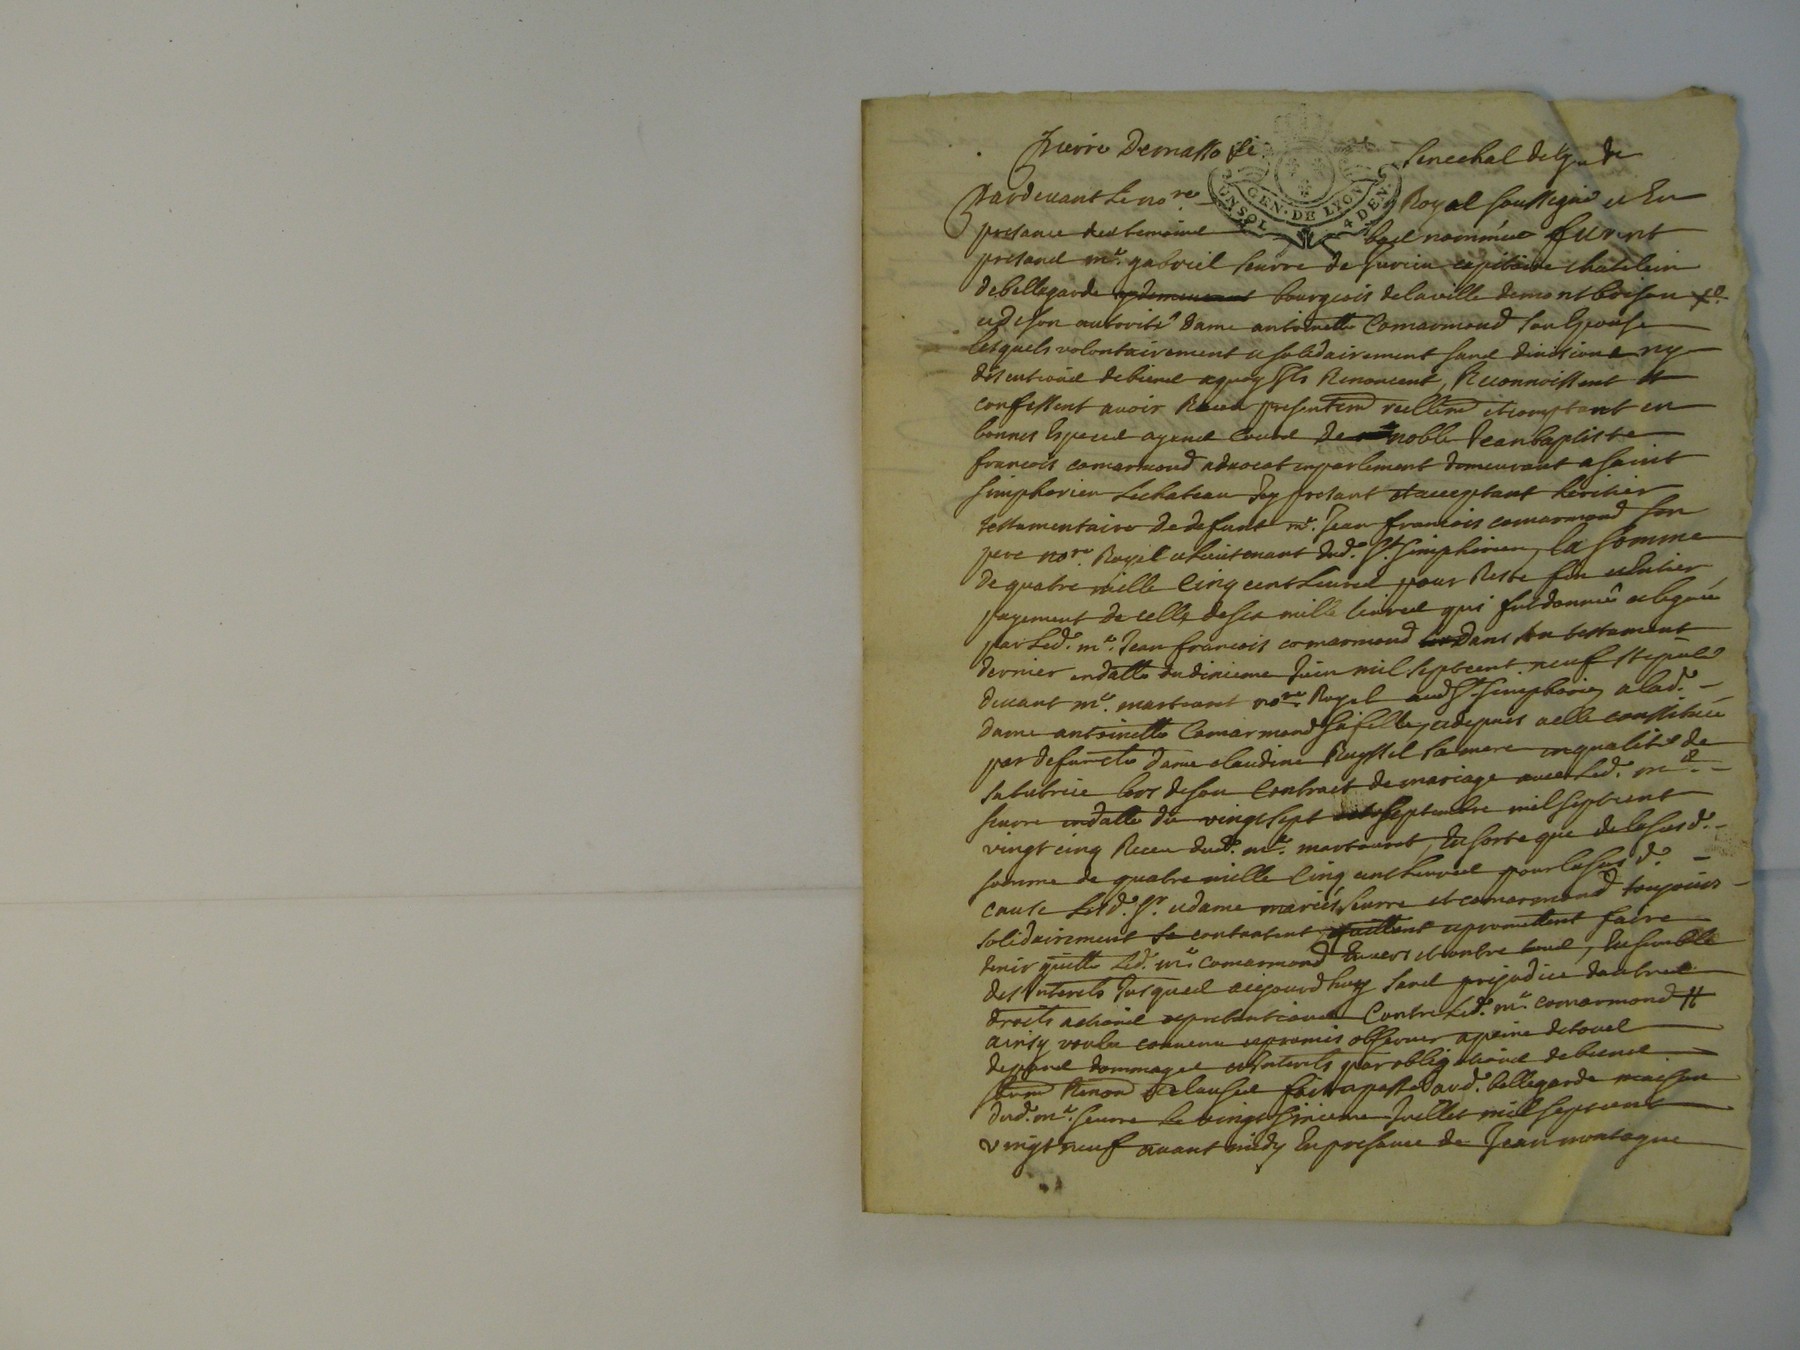 Pierre Demasso Se senechal de lyon de
GEN. DE LYON
4 DEN.
Pardevant le nore Royal soussigné et en
presance des temoins bas nommés furent
presans mr. gabriel seurre de capitaine chatelain
de bellegarde bourgeois de la ville de montbrison
et de son autorité dame antoinette Comarmond son Epouse
lesquels volontairement et solidairement sans division ny
discutions de biens a quoy Ils Renoncent, Reconnoissent et
confessent avoir Receu presentemt reellemt et comptant en
bonnes Especes ayans cours de noble Jean baptiste
francois comarmond advocat en parlement demeurant a saint
simphorien le chateau Icy present et acceptant heritier
testamentaire de defunt mr. Jean francois comarmond son
pere nore. Royal et lieutenant dud. St. simphorien, la somme
de quatre mille Cinq cent livres pour Reste fin et entier
payement de celle de six mille livres qui fut donnée et leguée
par led. mr. Jean francois comarmond dans son testament
dernier en datte du dixieme Juin mil sept cent neuf stipulé
devant me. martouret nore Royal aud St. simphorien a lad.
dame antoinette Comarmond sa fille, et depuis a elle constituée
par defuncte dame claudine Ruyssel sa mere en qualité de
sa tutrice lors de son Contract de mariage avec led. mr.
seurre en datte du vingt sept septembre mil sept cent
vingt cinq Receu dud. me. martouret, En sorte que de la susd.
somme de quatre mille Cinq cent livres pour la sus d.
cause lesd. Sr. et dame mariés seurre et comarmond toujours
solidairement se contentent, quittent et promettent faire
tenir quitte led. mr. comarmond Envers et contre tous, Ensemble
des Interets Jusques aujourdhuy sans prejudice dautres
droits actions et pretentions Contre led. mr. comarmond #
ainsy voulu convenu et promis observer a peine de tous
depans dommages et Interets par obligations de biens
soum Renon et clauses fait et passé aud. bellegarde maison
dud. mr. seurre le vingt sixieme Juillet mil sept cent
vingt neuf avant midy En presance de Jean montagne